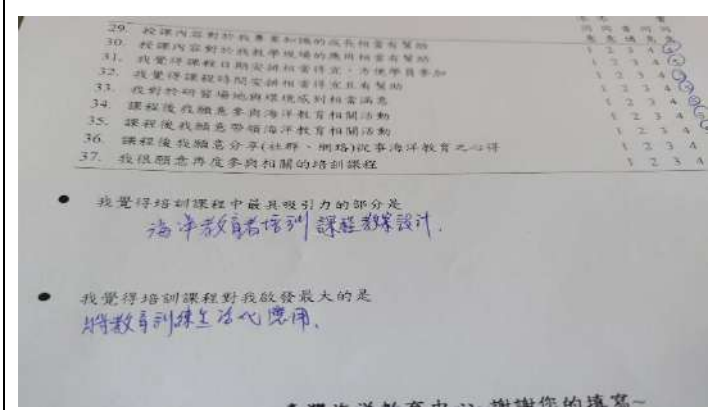 29. 授課內容對於我專業知識的成長相當有幫助
30. 授課內容對於我教學現場的應用相當有幫助 1 2 3 4
31. 我覺得課程日期安排相當得宜,方便學員參加 1 2 3 4
32. 我覺得課程時間安排相當得宜且有幫助 1 2 3 4
33. 我對於研習場地與環境感到相當滿意 1 2 3 4
34. 課程後我願意參與海洋教育相關活動 1 2 3 4
35. 課程後我願意帶領海洋教育相關活動 1 2 3 4
36. 課程後我願意分享(社群、網路)從事海洋教育之心得 1 2 3 4
37. 我很願意再度參與相關的培訓課程 1 2 3 4
● 我覺得培訓課程中最具吸引力的部分是
海洋教育者培訓課程教案設計.
● 我覺得培訓課程對我啟發最大的是
將教育訓練生活化應用、
臺灣海洋教育中心 謝謝您的填寫~